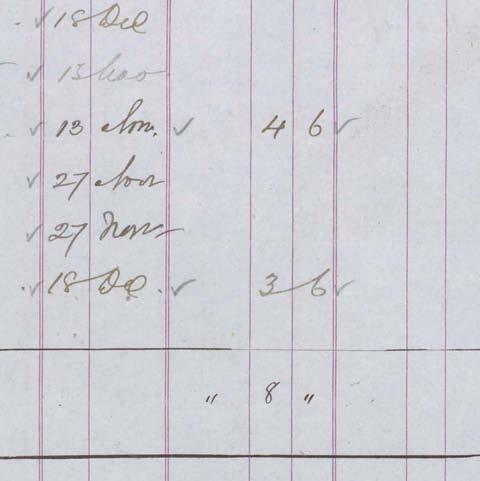 ✓ 18 Dec
✓ 13 Nov
✓ 13 Nov. ✓ 4 6 ✓
✓ 27 Nov
✓ 27 Nov
✓ 18 Dec. ✓ 3 6 ✓
" 8 "